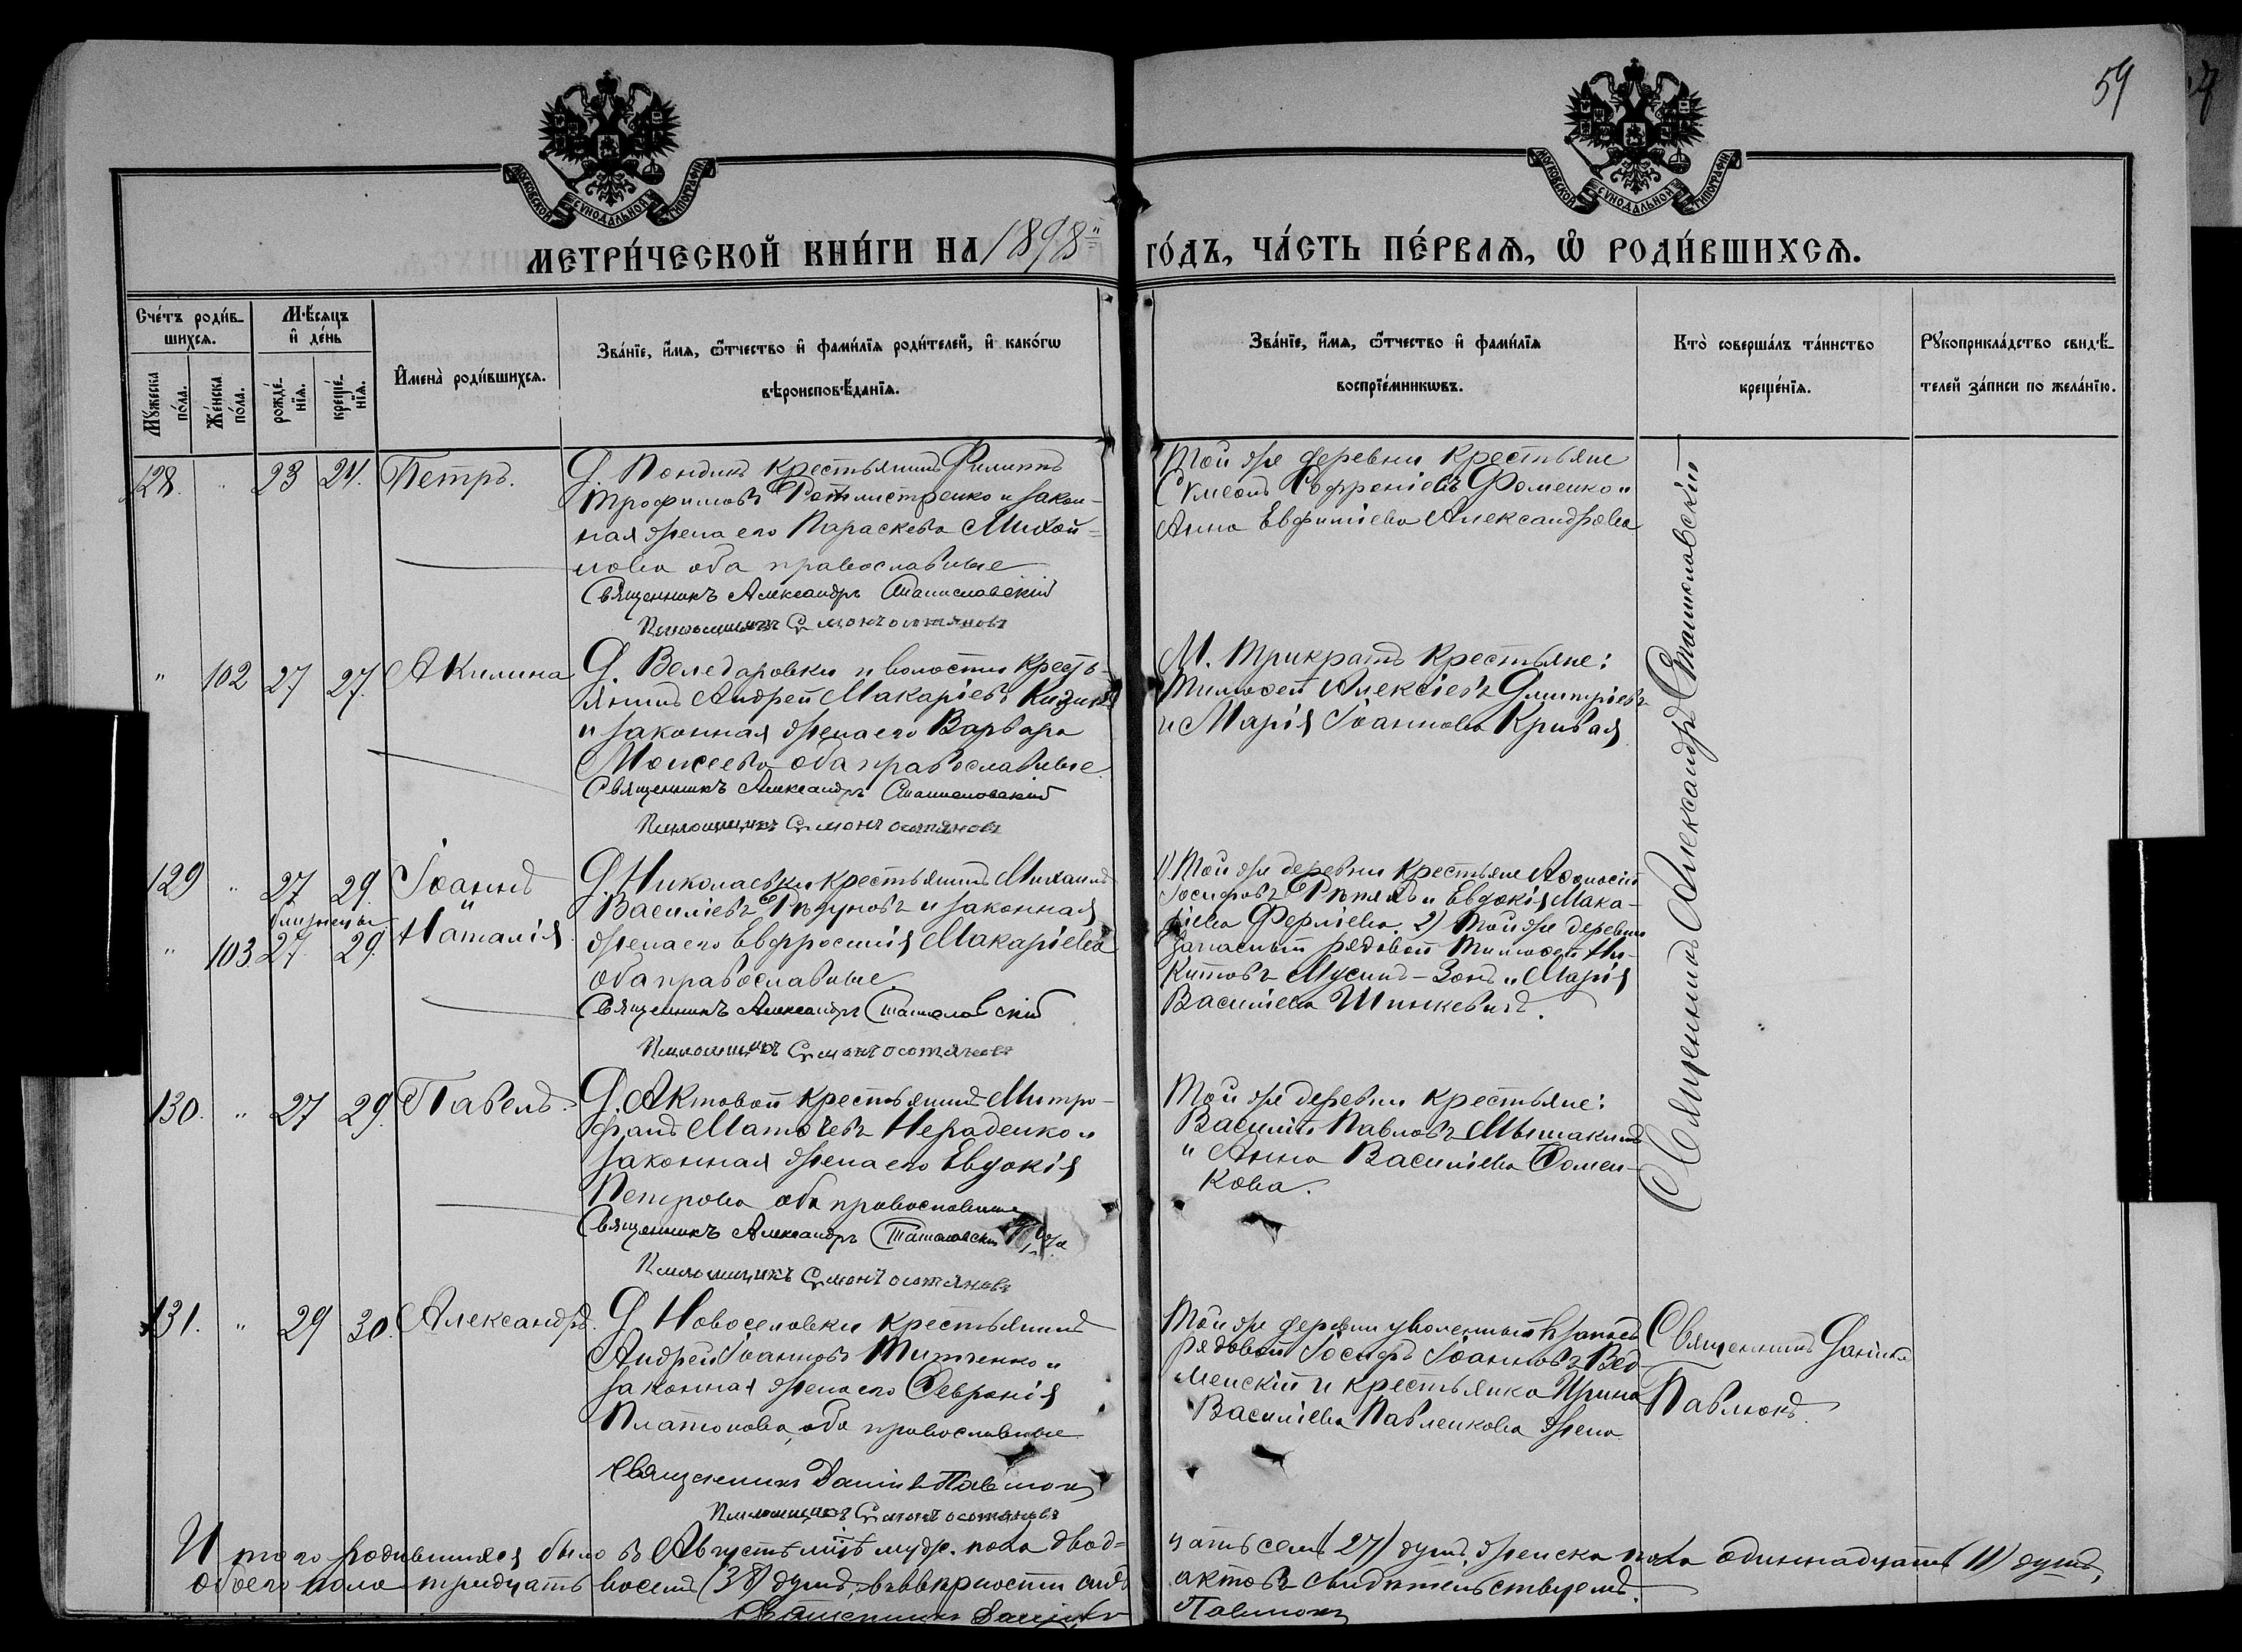 59
МОСКОВСКОЙ СѴНОДАЛЬНОЙ ТИПОГРАФІИ
МОСКОВСКОЙ СѴНОДАЛЬНОЙ ТИПОГРАФІИ
МЕТРИ́ЧЕСКОЙ КНИ́ГИ НА 1898й ГО́ДЪ, ЧА́СТЬ ПЕ́РВАѦ, Ѡ҆ РОДИ́ВШИХСѦ.
Сче́тъ роди́в-
шихсѧ.
Мꙋ́жеска по́ла.
Же́нска по́ла.
Мѣ́сѧцъ
и҆ де́нь
рожде́-
нїѧ.
креще́-
нїѧ.
И҆мена̀ роди́вшихсѧ.
Зва́нїе, и҆́мѧ, ѻ҆́тчество и҆ фами́лїѧ роди́телей, и҆ како́гѡ
вѣроисповѣ́данїѧ.
Зва́нїе, и҆́мѧ, ѻ҆́тчество и҆ фами́лїѧ
воспрїе́мникѡвъ.
Кто̀ соверша́лъ та́инство
креще́нїѧ.
Рꙋкоприкла́дство свидѣ́-
телей за́писи по жела́нїю.
128. " 23 24. Петръ.
Д. Пондикъ крестьянинъ Филиппъ
Трофимовъ Ротмистренко и закон-
ная жена его Параскева Михай-
лова оба православные
Священникъ Александръ Станиславскій
Псаломщикъ
Той же деревни крестьяне
Симеонъ Софроніевъ Фоменко и
Анна Евфиміева Александрова
Священникъ Александръ
" 102 27 27. Акилина
Д. Веледаровки и волости кресть-
янинъ Андрей Макаріевъ
и законная жена его Варвара
Моисеева оба православные
Священникъ Александръ
Псаломщикъ
М. Трикратъ крестьяне:
Тимофей Алексіевъ Димитріевъ
и Марія Іоаннова Кривая
129 " 27 29. Іоаннъ
близнецы и
" 103. 27. 29. Наталія
Д. Николаевки крестьянинъ Михаилъ
Василіевъ и законная
жена его Евфросинія Макаріева
оба православные.
Священникъ Александръ
Псаломщикъ
1) Той же деревни крестьяне Афанасій
Іосифовъ и Евдокія Мака-
ріева 2) Той же деревни
запасный рядовой Тимофей Ни-
китовъ и Марія
Василіева Шинкевичъ.
130. " 27 29. Павелъ.
Д. Актовой крестьянинъ Митро-
фанъ Матѳеевъ Нераденко и
законная жена его Евдокія
Петрова оба православные
Священникъ Александръ
Псаломщикъ
Той же деревни крестьяне:
Василій Павловъ
и Анна Василіева Семен-
кова.
131. " 29 30. Александръ.
Д. Новоселовки крестьянинъ
Андрей Іоанновъ Титченко и
законная жена его Февронія
Платонова, оба православные
Священникъ Даніилъ Павлюкъ
Псаломщикъ
Той же деревни уволенный въ запасъ
рядовой Іосифъ Іоанновъ Вед-
менскій и крестьянка Ирина
Василіева Павленкова жена
Священникъ Даніилъ
Павлюкъ.
Итого родившихся было въ Августѣ м-цѣ мужс. пола двад-
цать семь (27) душъ, женска пола одиннадцать (11) душъ,
обоего пола тридцать восемь (38) душъ, въ вѣрности сихъ
актовъ свидѣтельствуемъ.
Священникъ Даніилъ
Павлюкъ